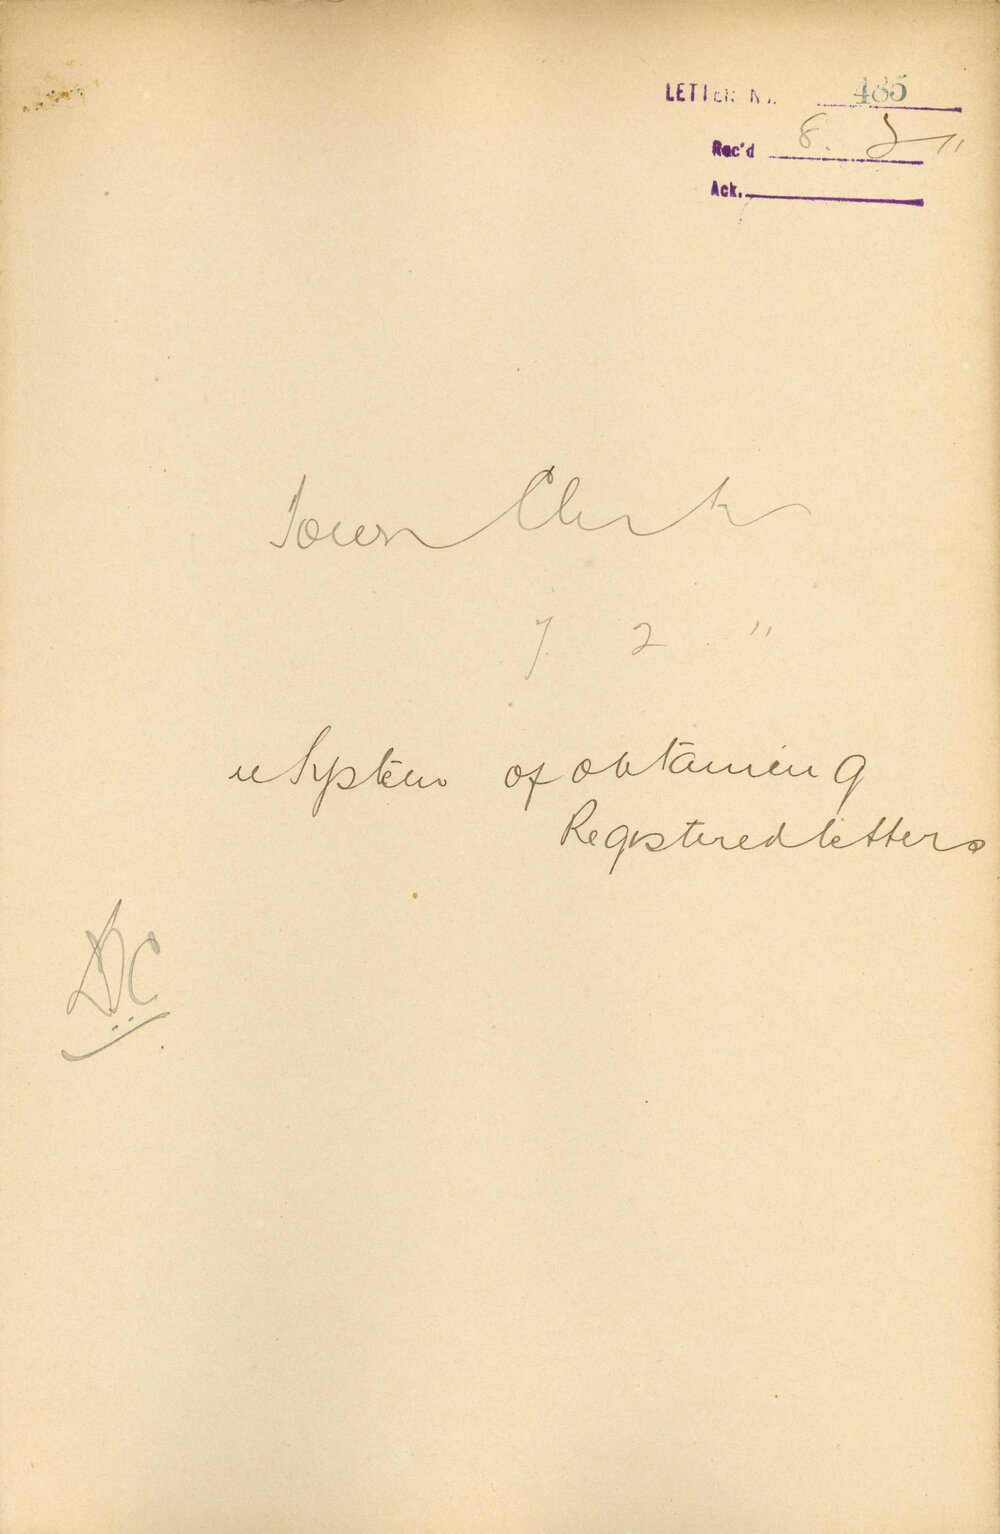 LETTER No. 485
Rec'd 8. 2 11
Ack.
Town Clerk
7. 2 11
re System of obtaining
Registered letters
DC